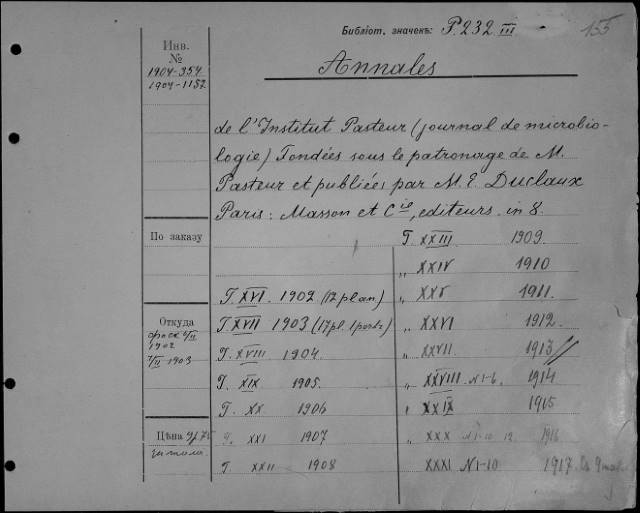 Библіот. значекъ: P. 232 III 155
Инв.
№
1904-354
1904-1152
Annales
de l'Institut Pasteur (journal de microbio-
logie) Fondées sous le patronage de M.
Pasteur et publiées par M. E. Duclaux
Paris: Masson et Cie, editeurs. in 8.
По заказу
Откуда
1902
7/II 1903
Цѣна
T. XVI. 1902 (12 plan.)
T. XVII 1903 (17 pl. 1 portr.)
T. XVIII 1904.
T. XIX 1905.
T. XX 1906
T. XXI 1907
T. XXII 1908
T. XXIII 1909.
„ XXIV 1910
„ XXV 1911.
„ XXVI 1912.
„ XXVII. 1913
„ XXVIII N1-6. 1914
„ XXIX 1915
„ XXX N1-10 12 1916
XXXI N1-10 1917.